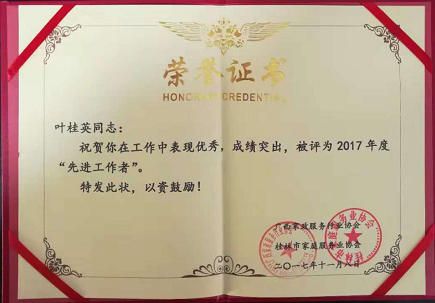 荣誉证书
HONOR CREDENTIAL
叶桂英同志：
祝贺你在工作中表现优秀，成绩突出，被评为2017年度
“先进工作者”。
特发此状，以资鼓励！
广西家政服务行业协会
桂林市家庭服务业协会
二〇一七年十一月八日